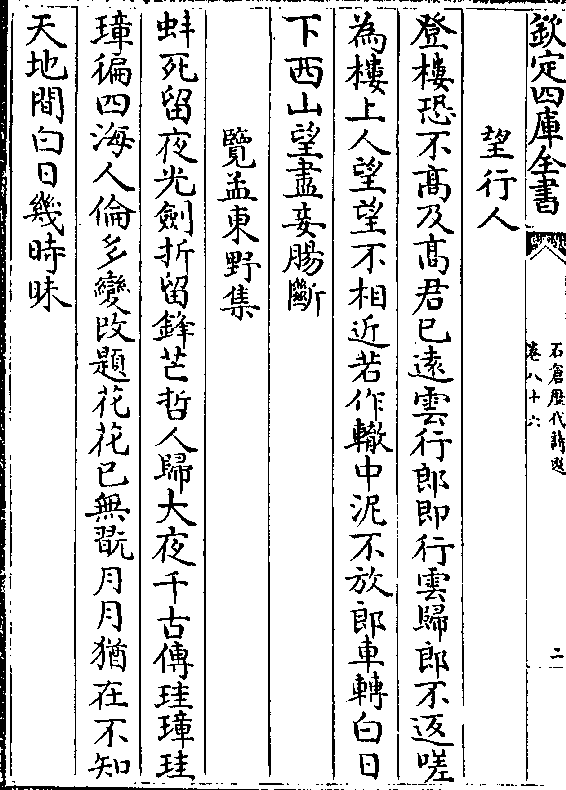 欽定四庫全書
石倉歷代詩選
卷八十六
二
望行人
登樓恐不髙及髙君已遠雲行郎即行雲歸郎不返嗟
為樓上人望望不相近若作轍中泥不放郎車轉白日
下西山望盡妾腸斷
覽孟東野集
蚌死留夜光劍折留鋒芒哲人歸大夜千古傳珪璋珪
璋徧四海人倫多變改題花花已無翫月月猶在不知
天地間白日幾時昧